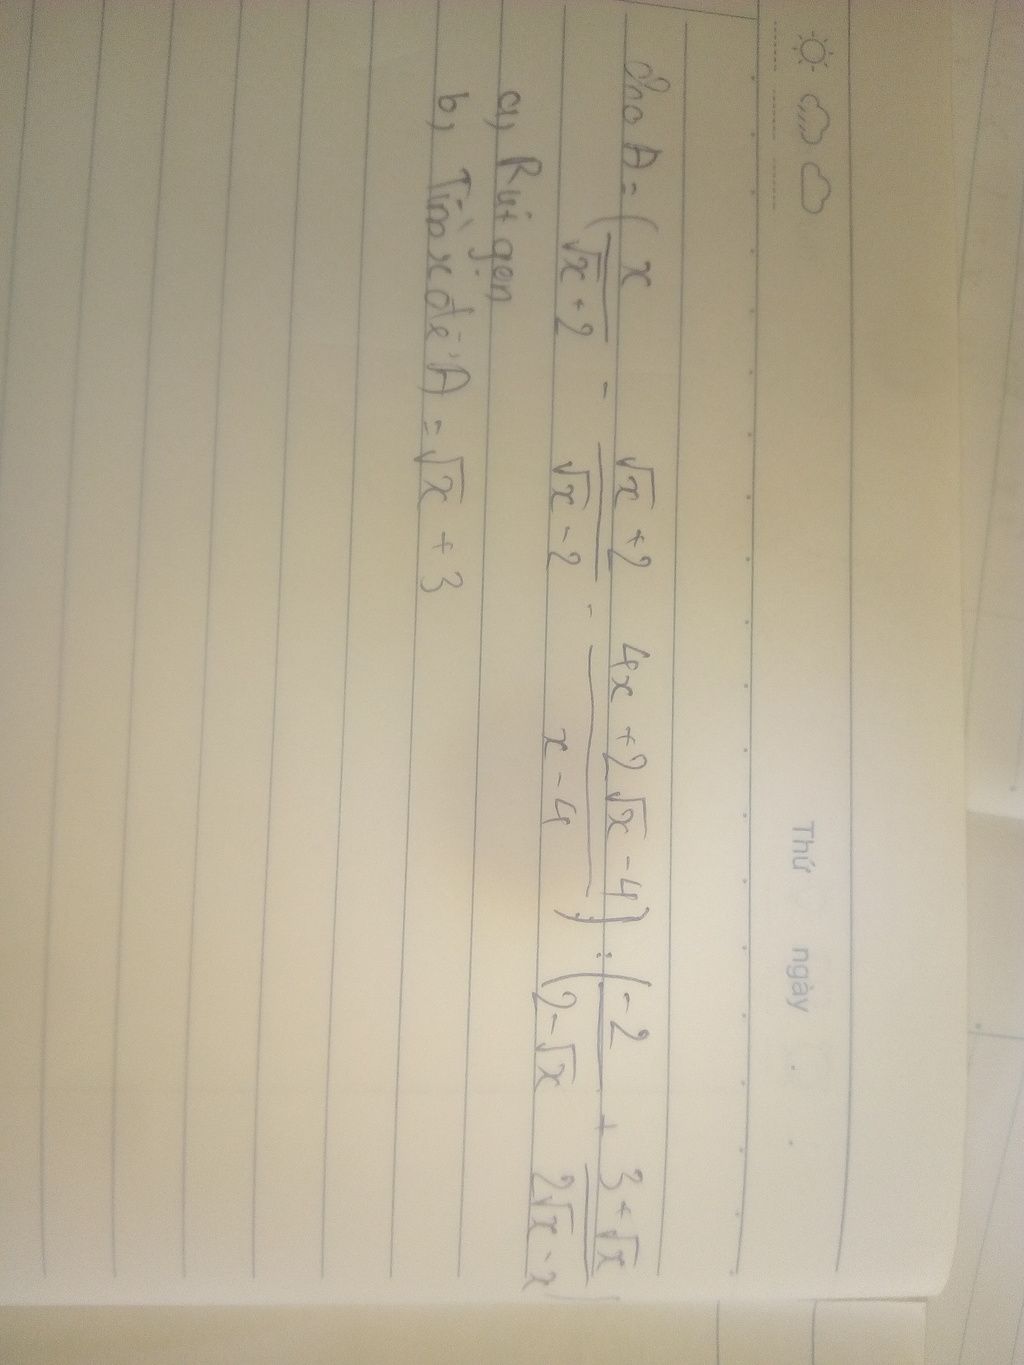 Thứ ngày
Cho A = ( x / √x + 2 - √x + 2 / √x - 2 - 4x + 2√x - 4 / x - 4 ) : ( -2 / 2 - √x + 3 + √x / 2√x - x )
a, Rút gọn
b, Tìm x để A = √x + 3